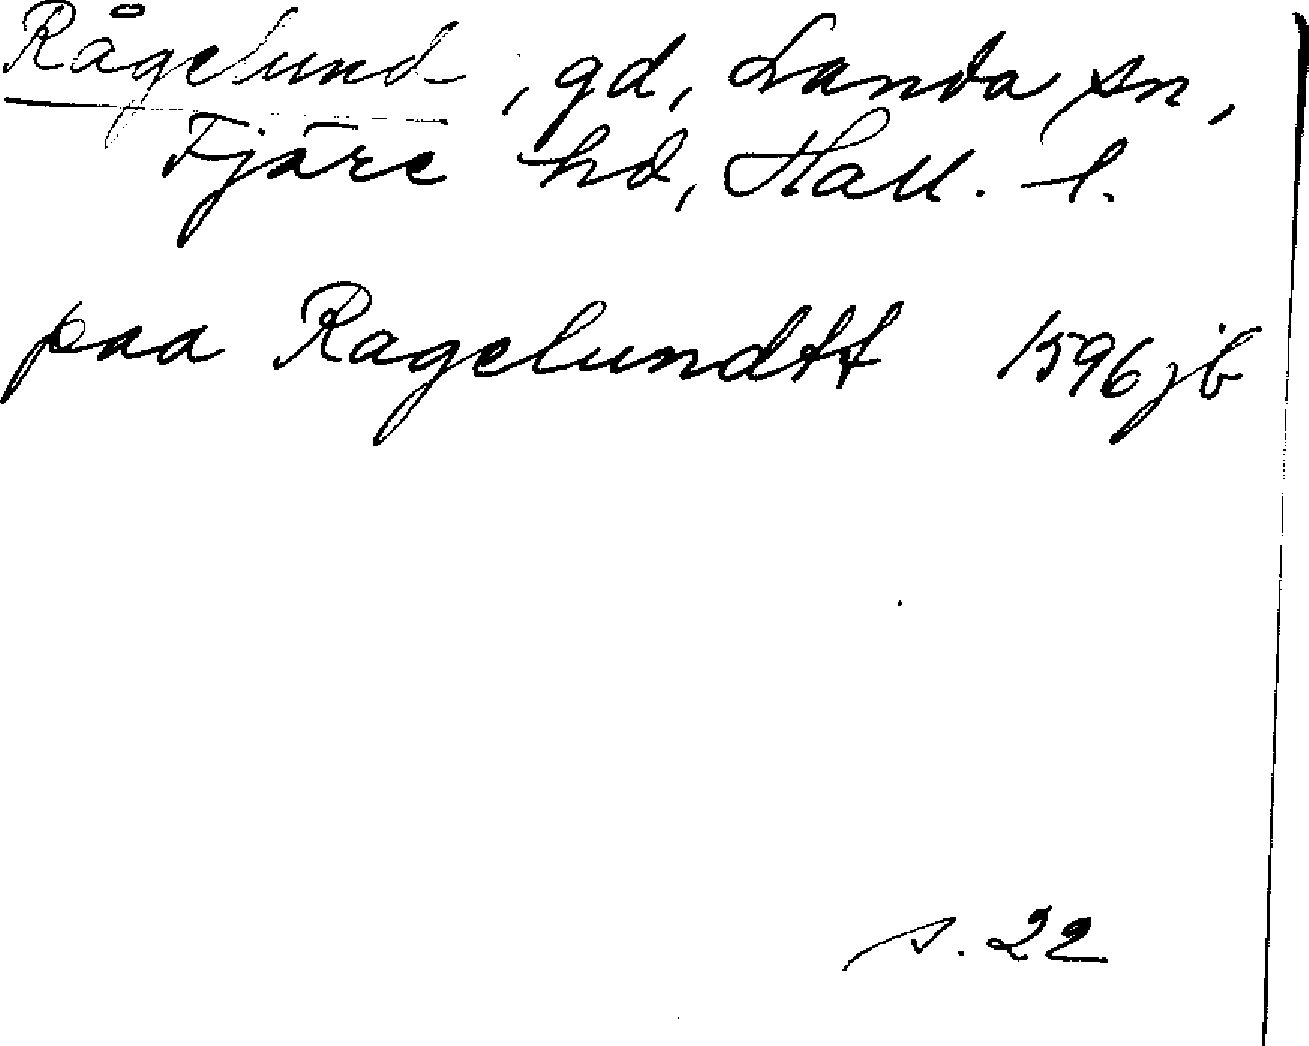 Rågelund, gd, Landa sn,
Fjäre hd, Hall. l.
paa Ragelundtt 1596 jb
s. 22